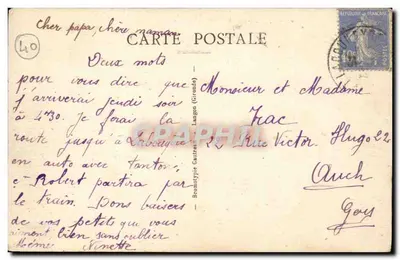 Cher papa, chère maman
CARTE POSTALE
40
Deux mots
pour vous dire que
j'arriverai jeudi soir
à 4h30. Je ferai la
route jusqu'à Libourne
en auto avec tonton
Robert partira par
le train. Bons baisers
de vos petits qui vous
aiment bien sans oublier
Mémé Ninette
Monsieur et Madame
Zac
22 Rue Victor Hugo 22
Auch
Gers